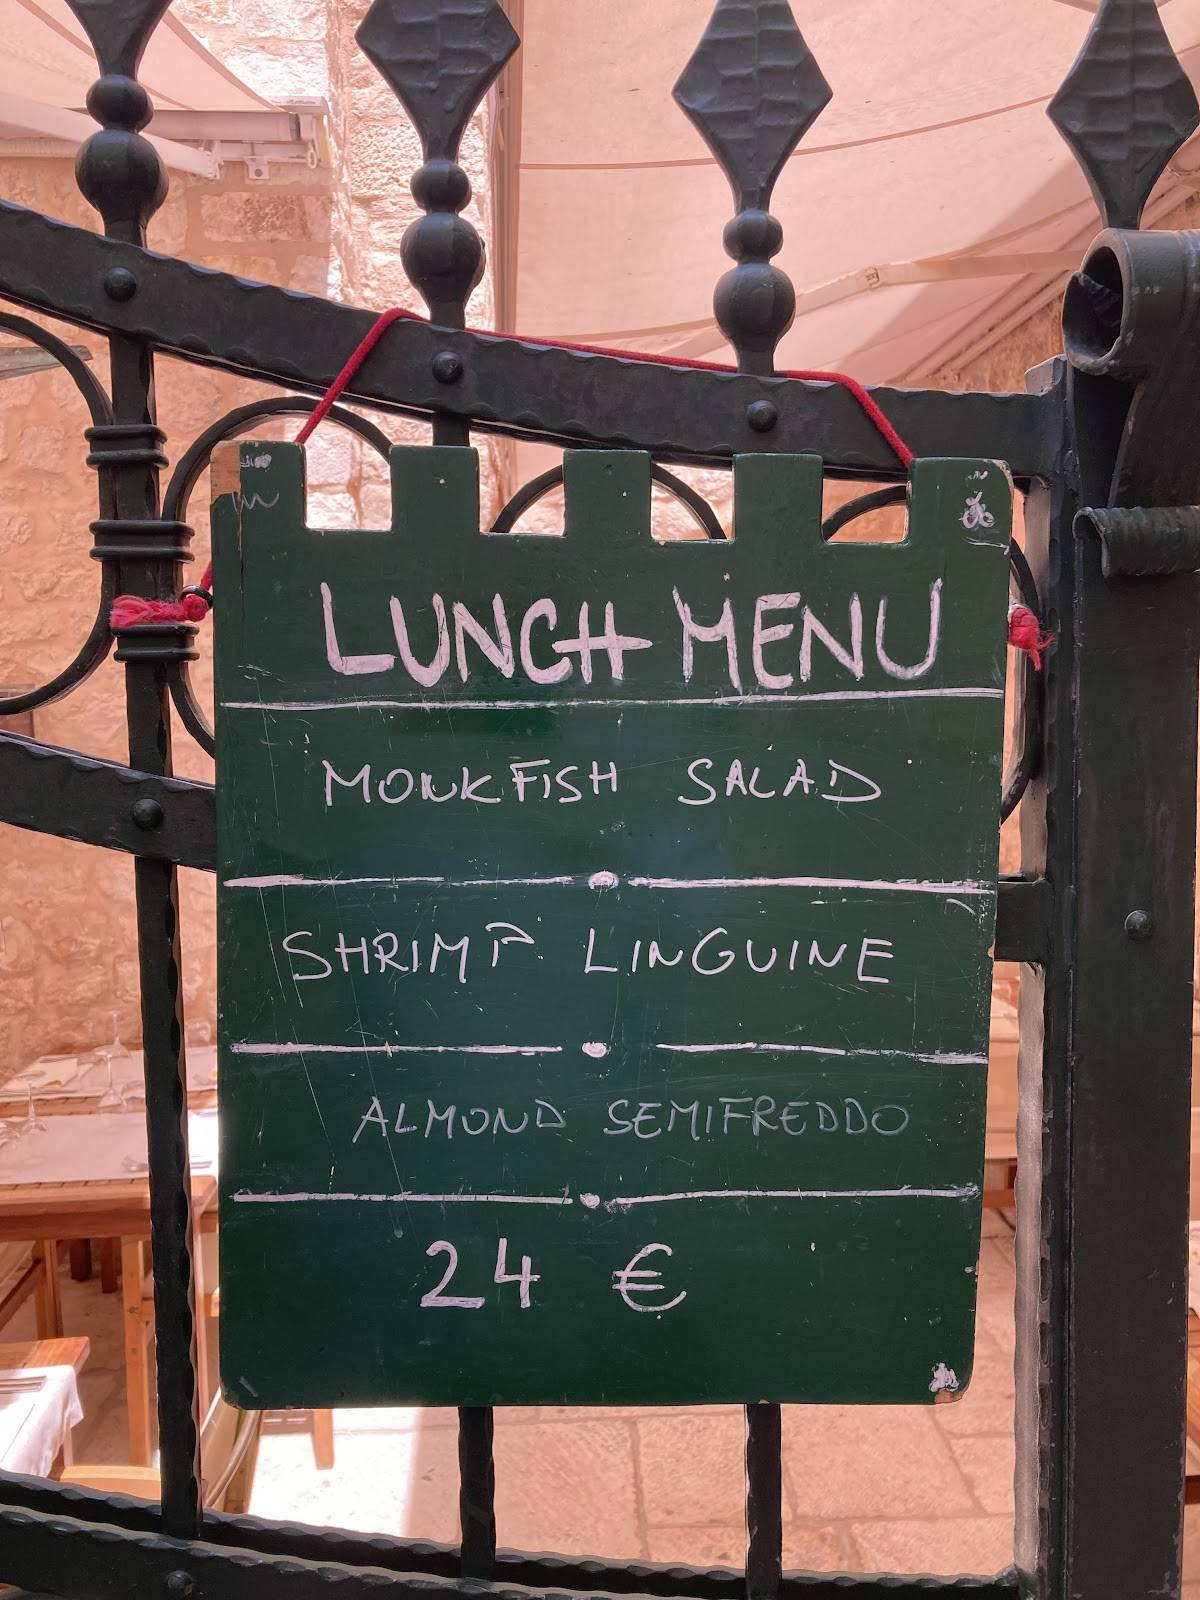 LUNCH MENU
MONKFISH SALAD
SHRIMP LINGUINE
ALMOND SEMIFREDDO
24 €